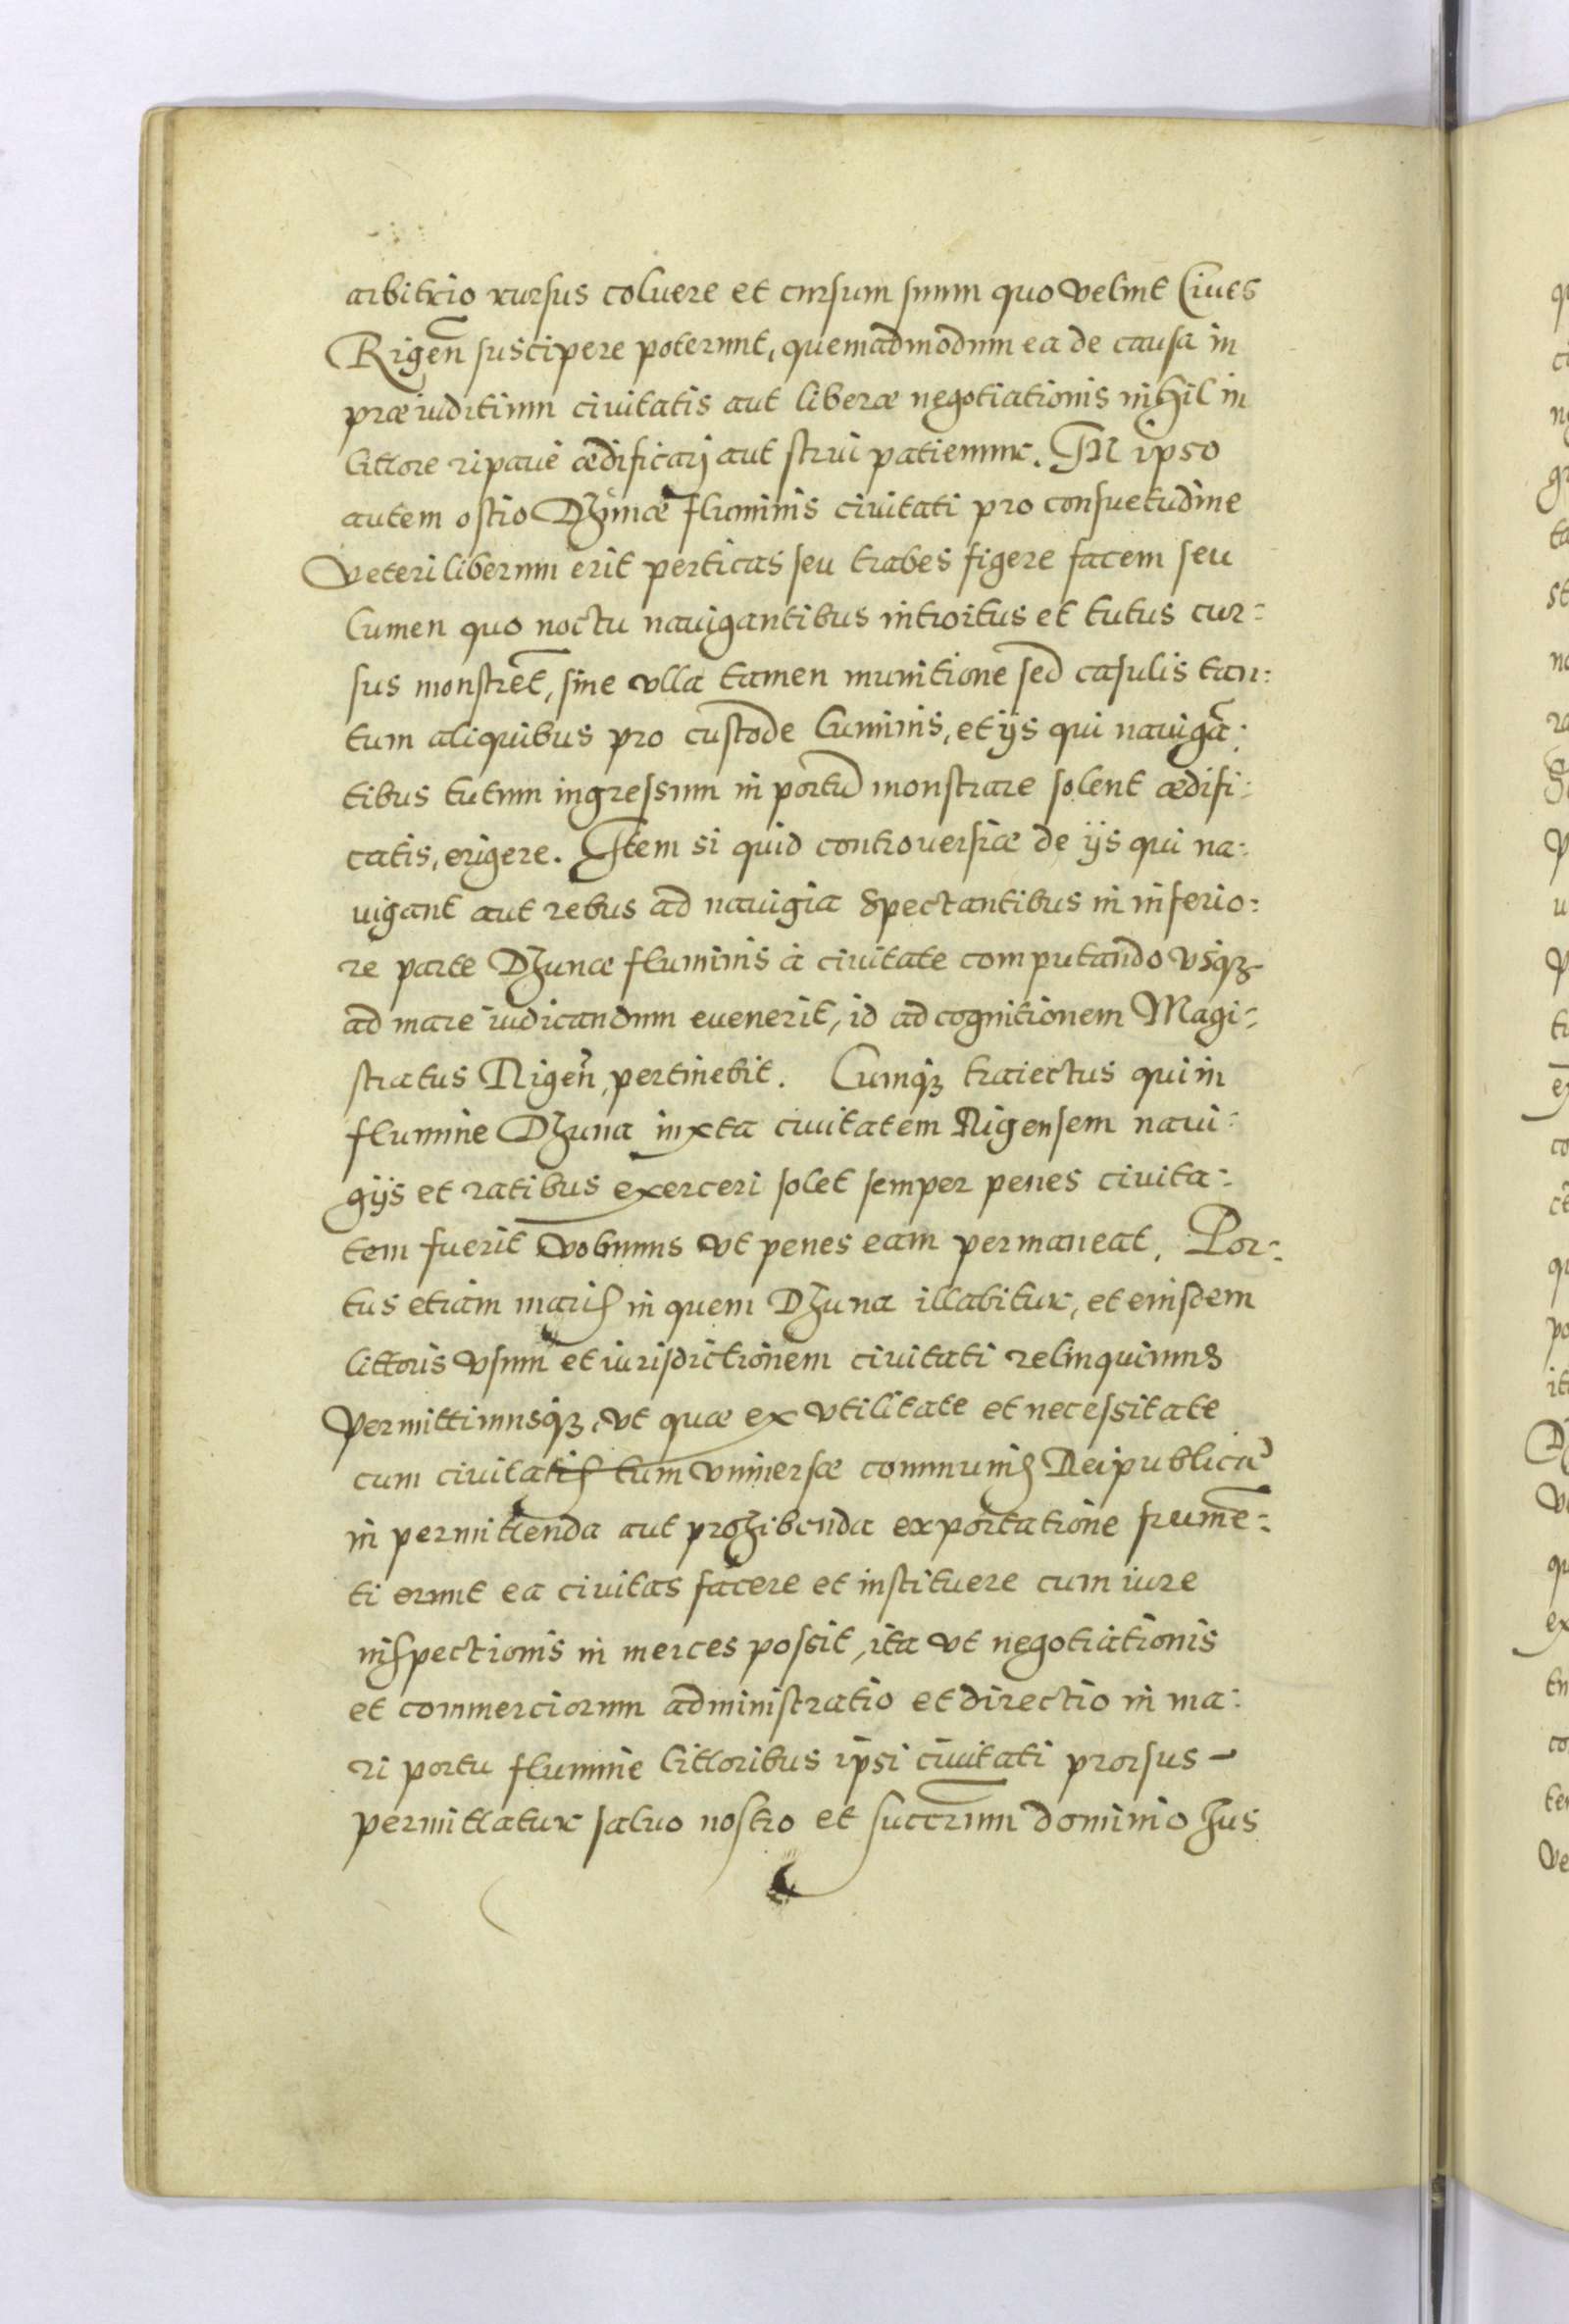 arbitrio rursus coluere et cursum suum quo velint Ciues
Rigeñ suscipere poterunt, quemadmodum ea de causa in
præiuditium ciuitatis aut liberæ negotiationis nihil in
littore ripaue ædificarj aut strui patiemur. In ipso
autem ostio Dzunæ fluminis ciuitati pro consuetudine
veteri liberum erit perticas seu trabes figere facem seu
lumen quo noctu nauigantibus introitus et tutus cur:
sus monstret, sine vlla tamen munitione sed casulis tan:
tum aliquibus pro custode luminis, et ijs qui nauigã:
tibus tutum ingressum in portũ monstrare solent ædifi:
catis, erigere. Item si quid controuersiæ de ijs qui na:
uigant aut rebus ad nauigia spectantibus in inferio:
re parte Dzunæ fluminis à ciuitate computando vsqꝫ
ad mare iudicandum euenerit, id ad cognitionem Magi:
stratus Rigeñ, pertinebit. Cumqꝫ traiectus qui in
flumine Dzuna iuxta ciuitatem Rigensem naui:
gijs et ratibus exerceri solet semper penes ciuita:
tem fuerit volumus vt penes eam permaneat, Por:
tus etiam maris in quem Dzuna illabitur, et eiusdem
littoris vsum et iurisdictionem ciuitati relinquimus
permittimusqꝫ, vt quæ ex vtilitate et necessitate
cum ciuitatis tum vniuersæ communis Reipublicæ
in permittenda aut prohibenda exportatione frumẽ:
ti erunt ea ciuitas facere et instituere cum iure
inspectionis in merces possit, ita vt negotiationis
et commerciorum administratio et directio in ma:
ri portu flumine littoribus ipsi ciuitati prorsus
permittatur saluo nostro et succrum dominio Jus